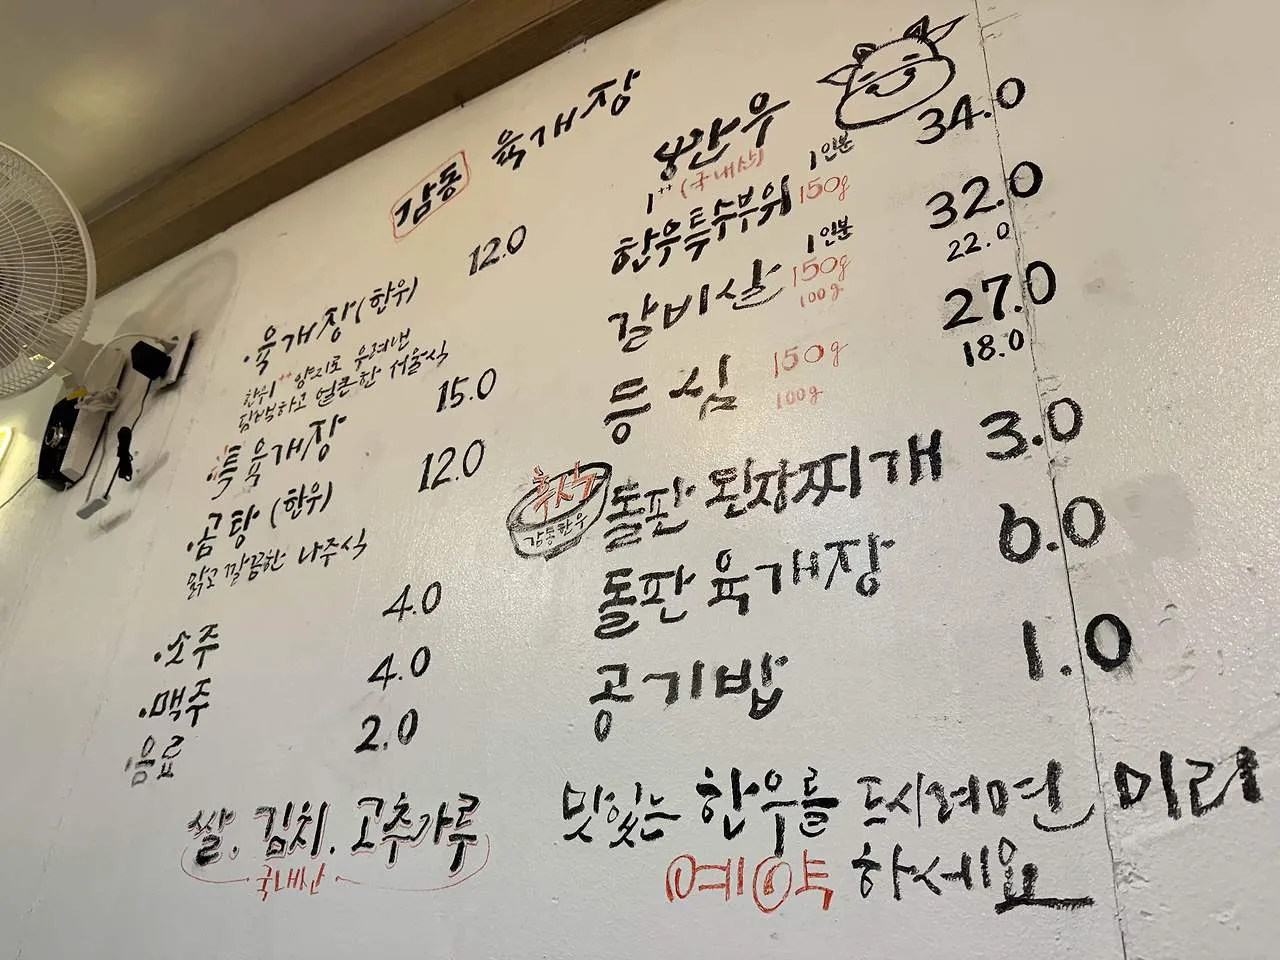 감동 육개장
·육개장(한우) 12.0
한우1++ 양지로 우려낸
담백하고 얼큰한 서울식
·특육개장 15.0
·곰탕(한우) 12.0
맑고 깔끔한 나주식
·소주 4.0
·맥주 4.0
·음료 2.0
쌀, 김치, 고추가루
국내산
한우
1++(국내산)
한우특수부위 1인분 150g 34.0
갈비살 1인분 150g 32.0
100g 22.0
등심 150g 27.0
100g 18.0
후식
감동한우
돌판 된장찌개 3.0
돌판 육개장 6.0
공기밥 1.0
맛있는 한우를 드시려면 미리
예약 하세요